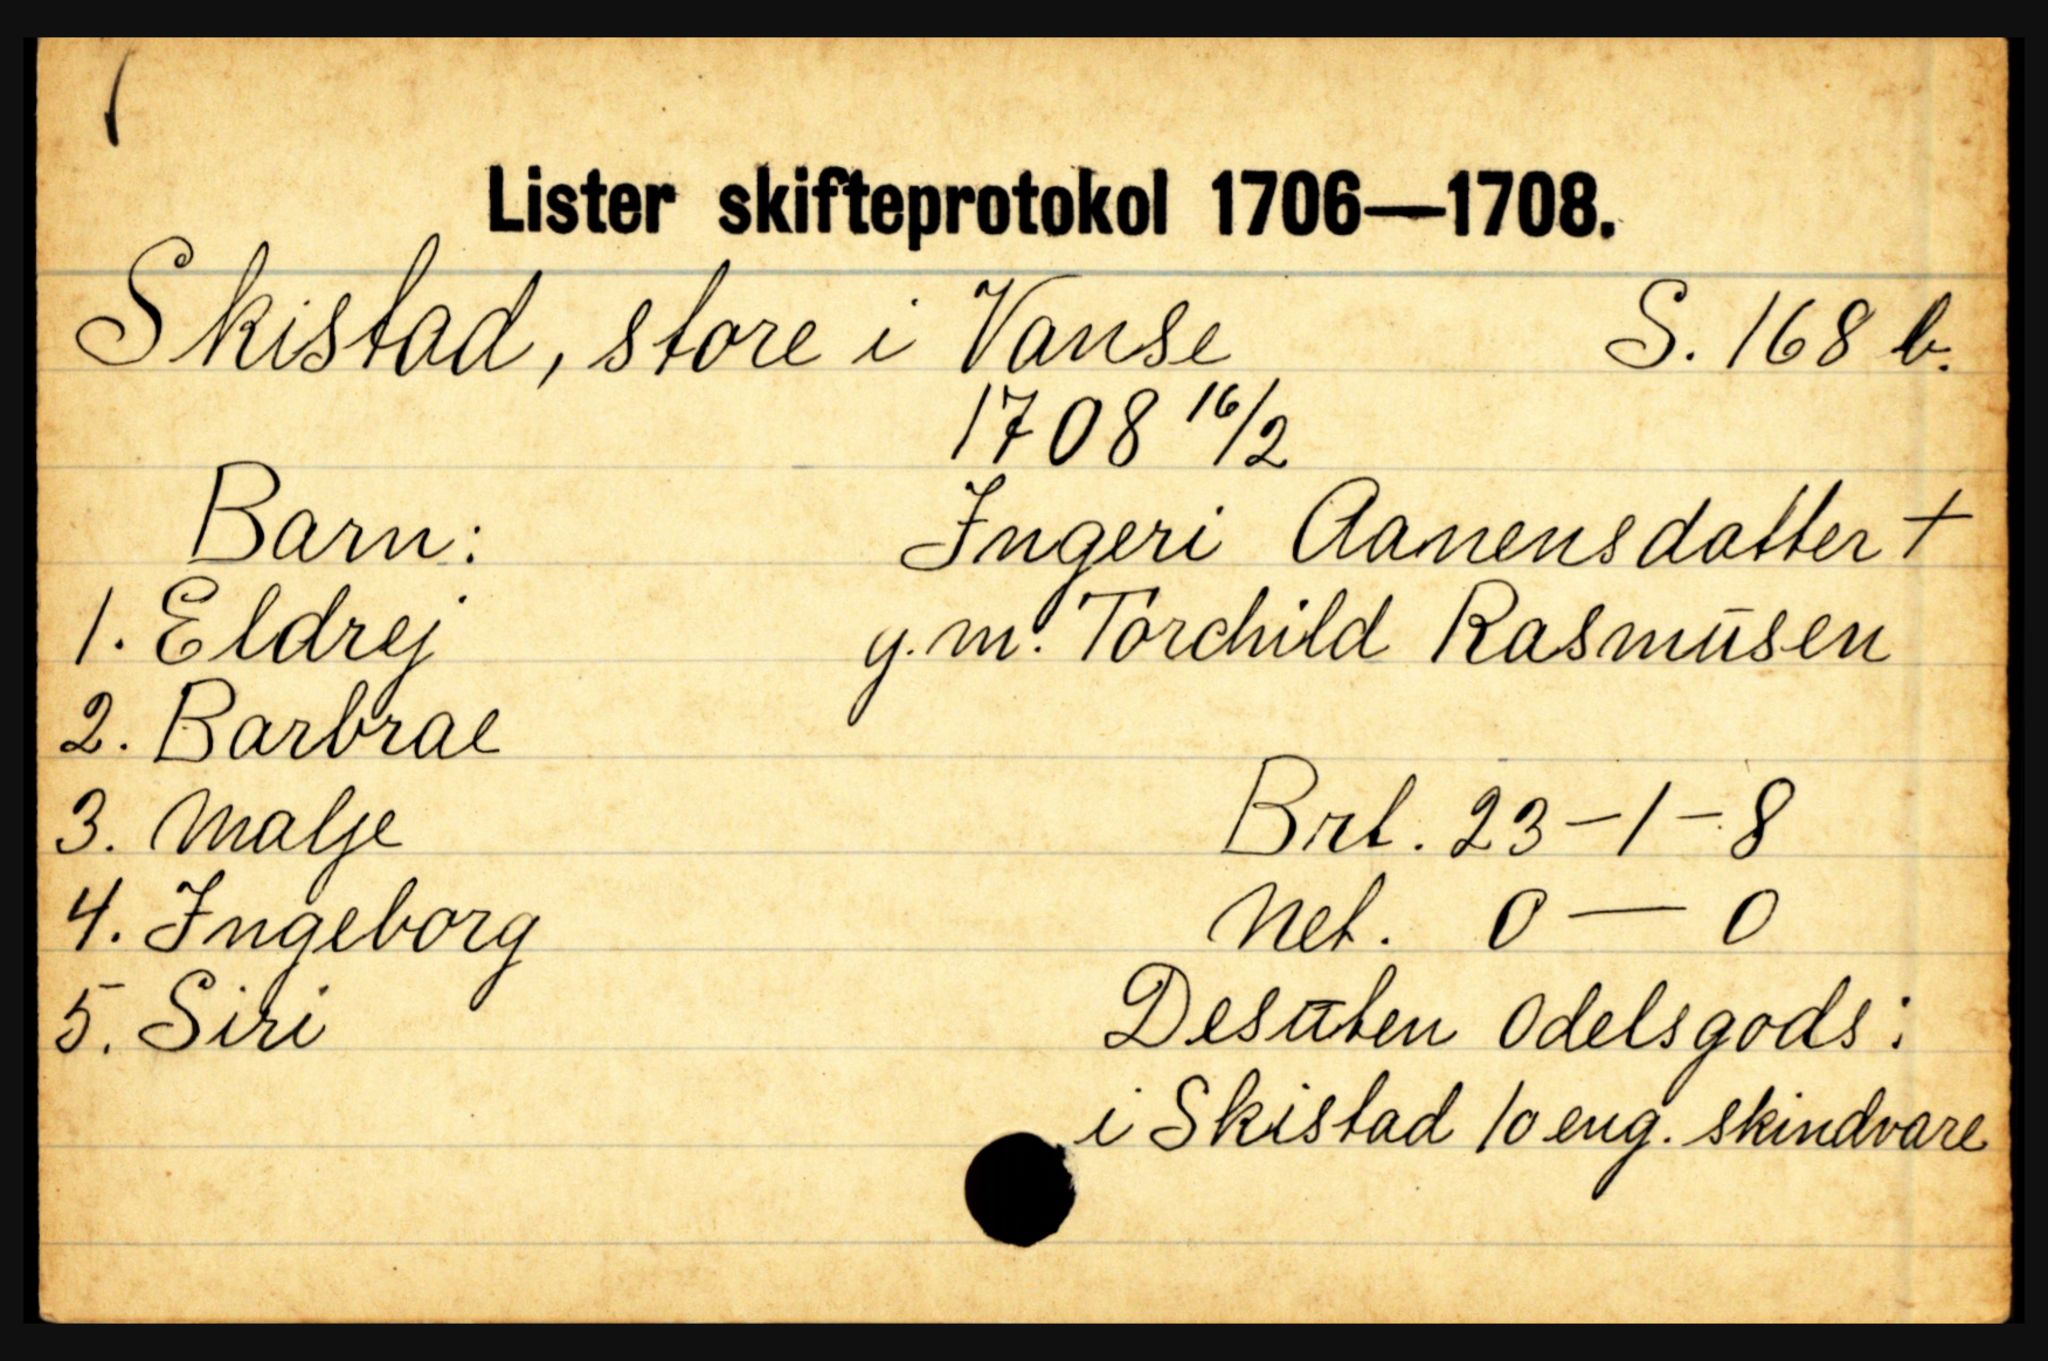 Lister skifteprotokol 1706—1708.
Skistad, store i Vanse S. 168 b.
1708 16/2
Barn: Ingeri Aanensdatter +
1. Eldrej g.m. Torchild Rasmusen
2. Barbrae
3. Malje Brt. 23-1-8
4. Ingeborg Net. 0 — 0
5. Siri Desuten Odelsgods:
i Skistad 10 eng. skindvare